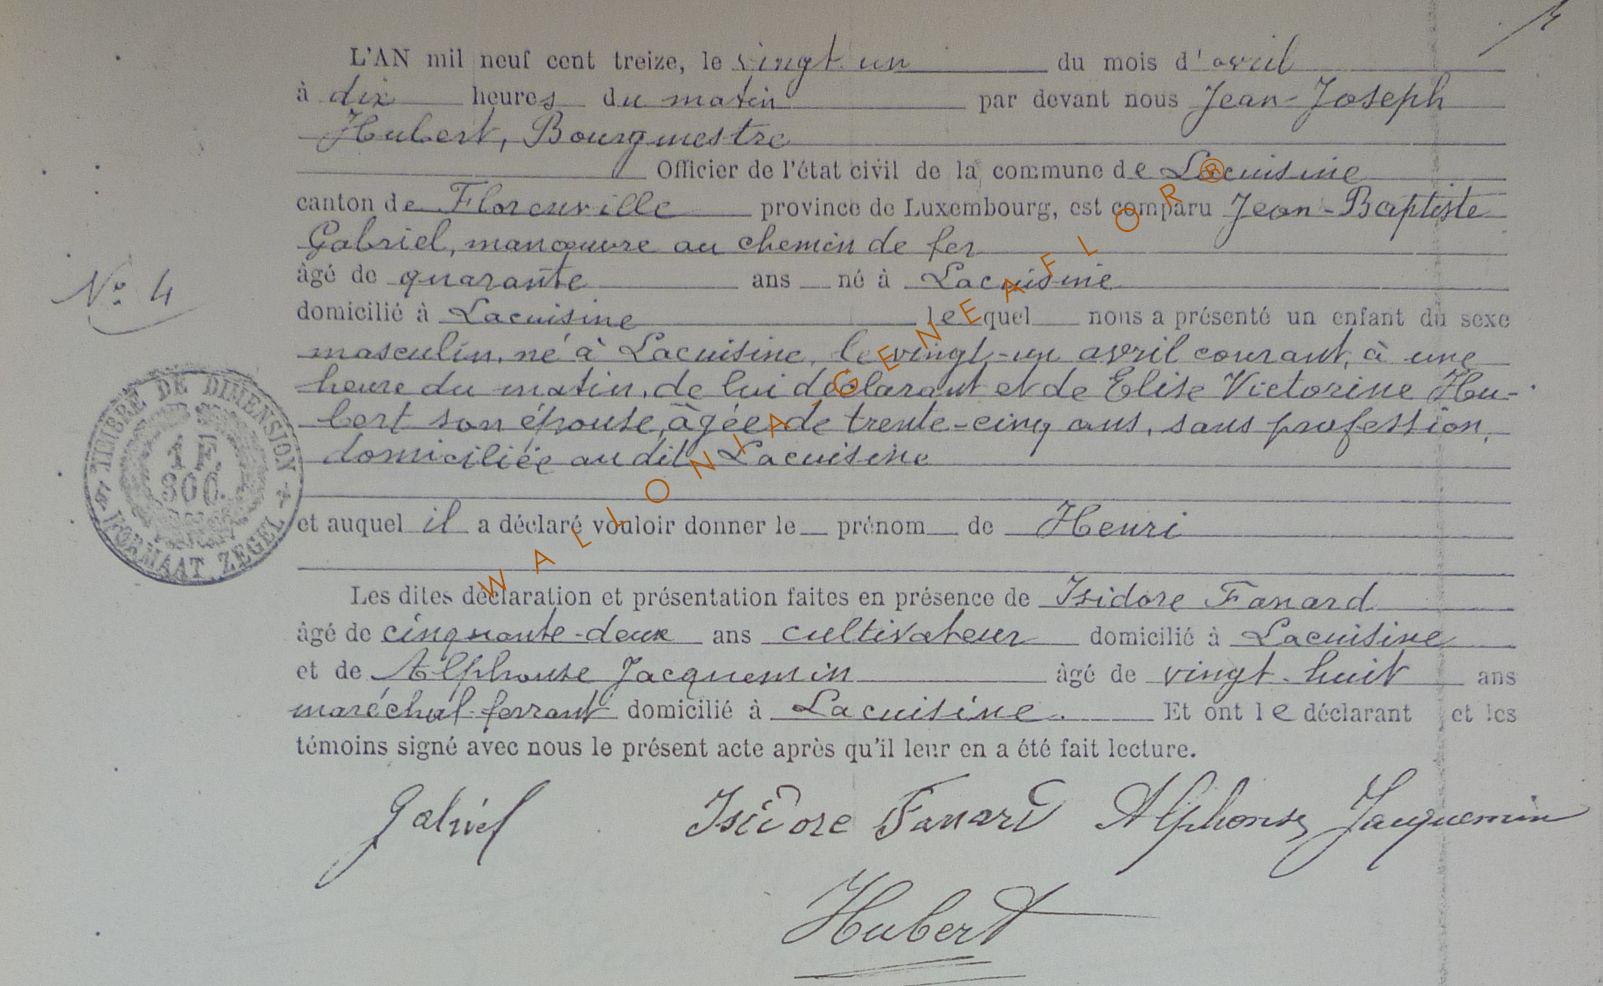 L'AN mil neuf cent treize, le vingt un du mois d'avril
à dix heures du matin par devant nous Jean-Joseph
Hubert, Bourgmestre
Officier de l'état civil de la commune de Lacuisine
canton de Florenville province de Luxembourg, est comparu Jean-Baptiste
Gabriel, manœuvre au chemin de fer
âgé de quarante ans né à Lacuisine
N° 4
domicilié à Lacuisine lequel nous a présenté un enfant du sexe
masculin, né à Lacuisine, le vingt-un avril courant, à une
heure du matin, de lui déclarant et de Elise Victorine Hu-
bert son épouse, âgée de trente-cinq ans, sans profession,
domiciliée au dit Lacuisine
TIMBRE DE DIMENSION
1 F.
30 C.
FORMAAT ZEGEL
et auquel il a déclaré vouloir donner le prénom de Henri
Les dites déclaration et présentation faites en présence de Isidore Fanard
âgé de cinquante-deux ans cultivateur domicilié à Lacuisine
et de Alphonse Jacquemin âgé de vingt-huit ans
maréchal-ferrant domicilié à Lacuisine. Et ont le déclarant et les
témoins signé avec nous le présent acte après qu'il leur en a été fait lecture.
Gabriel Isidore Fanard Alphonse Jacquemin
Hubert
WALLONIA-GENEAFLOR®